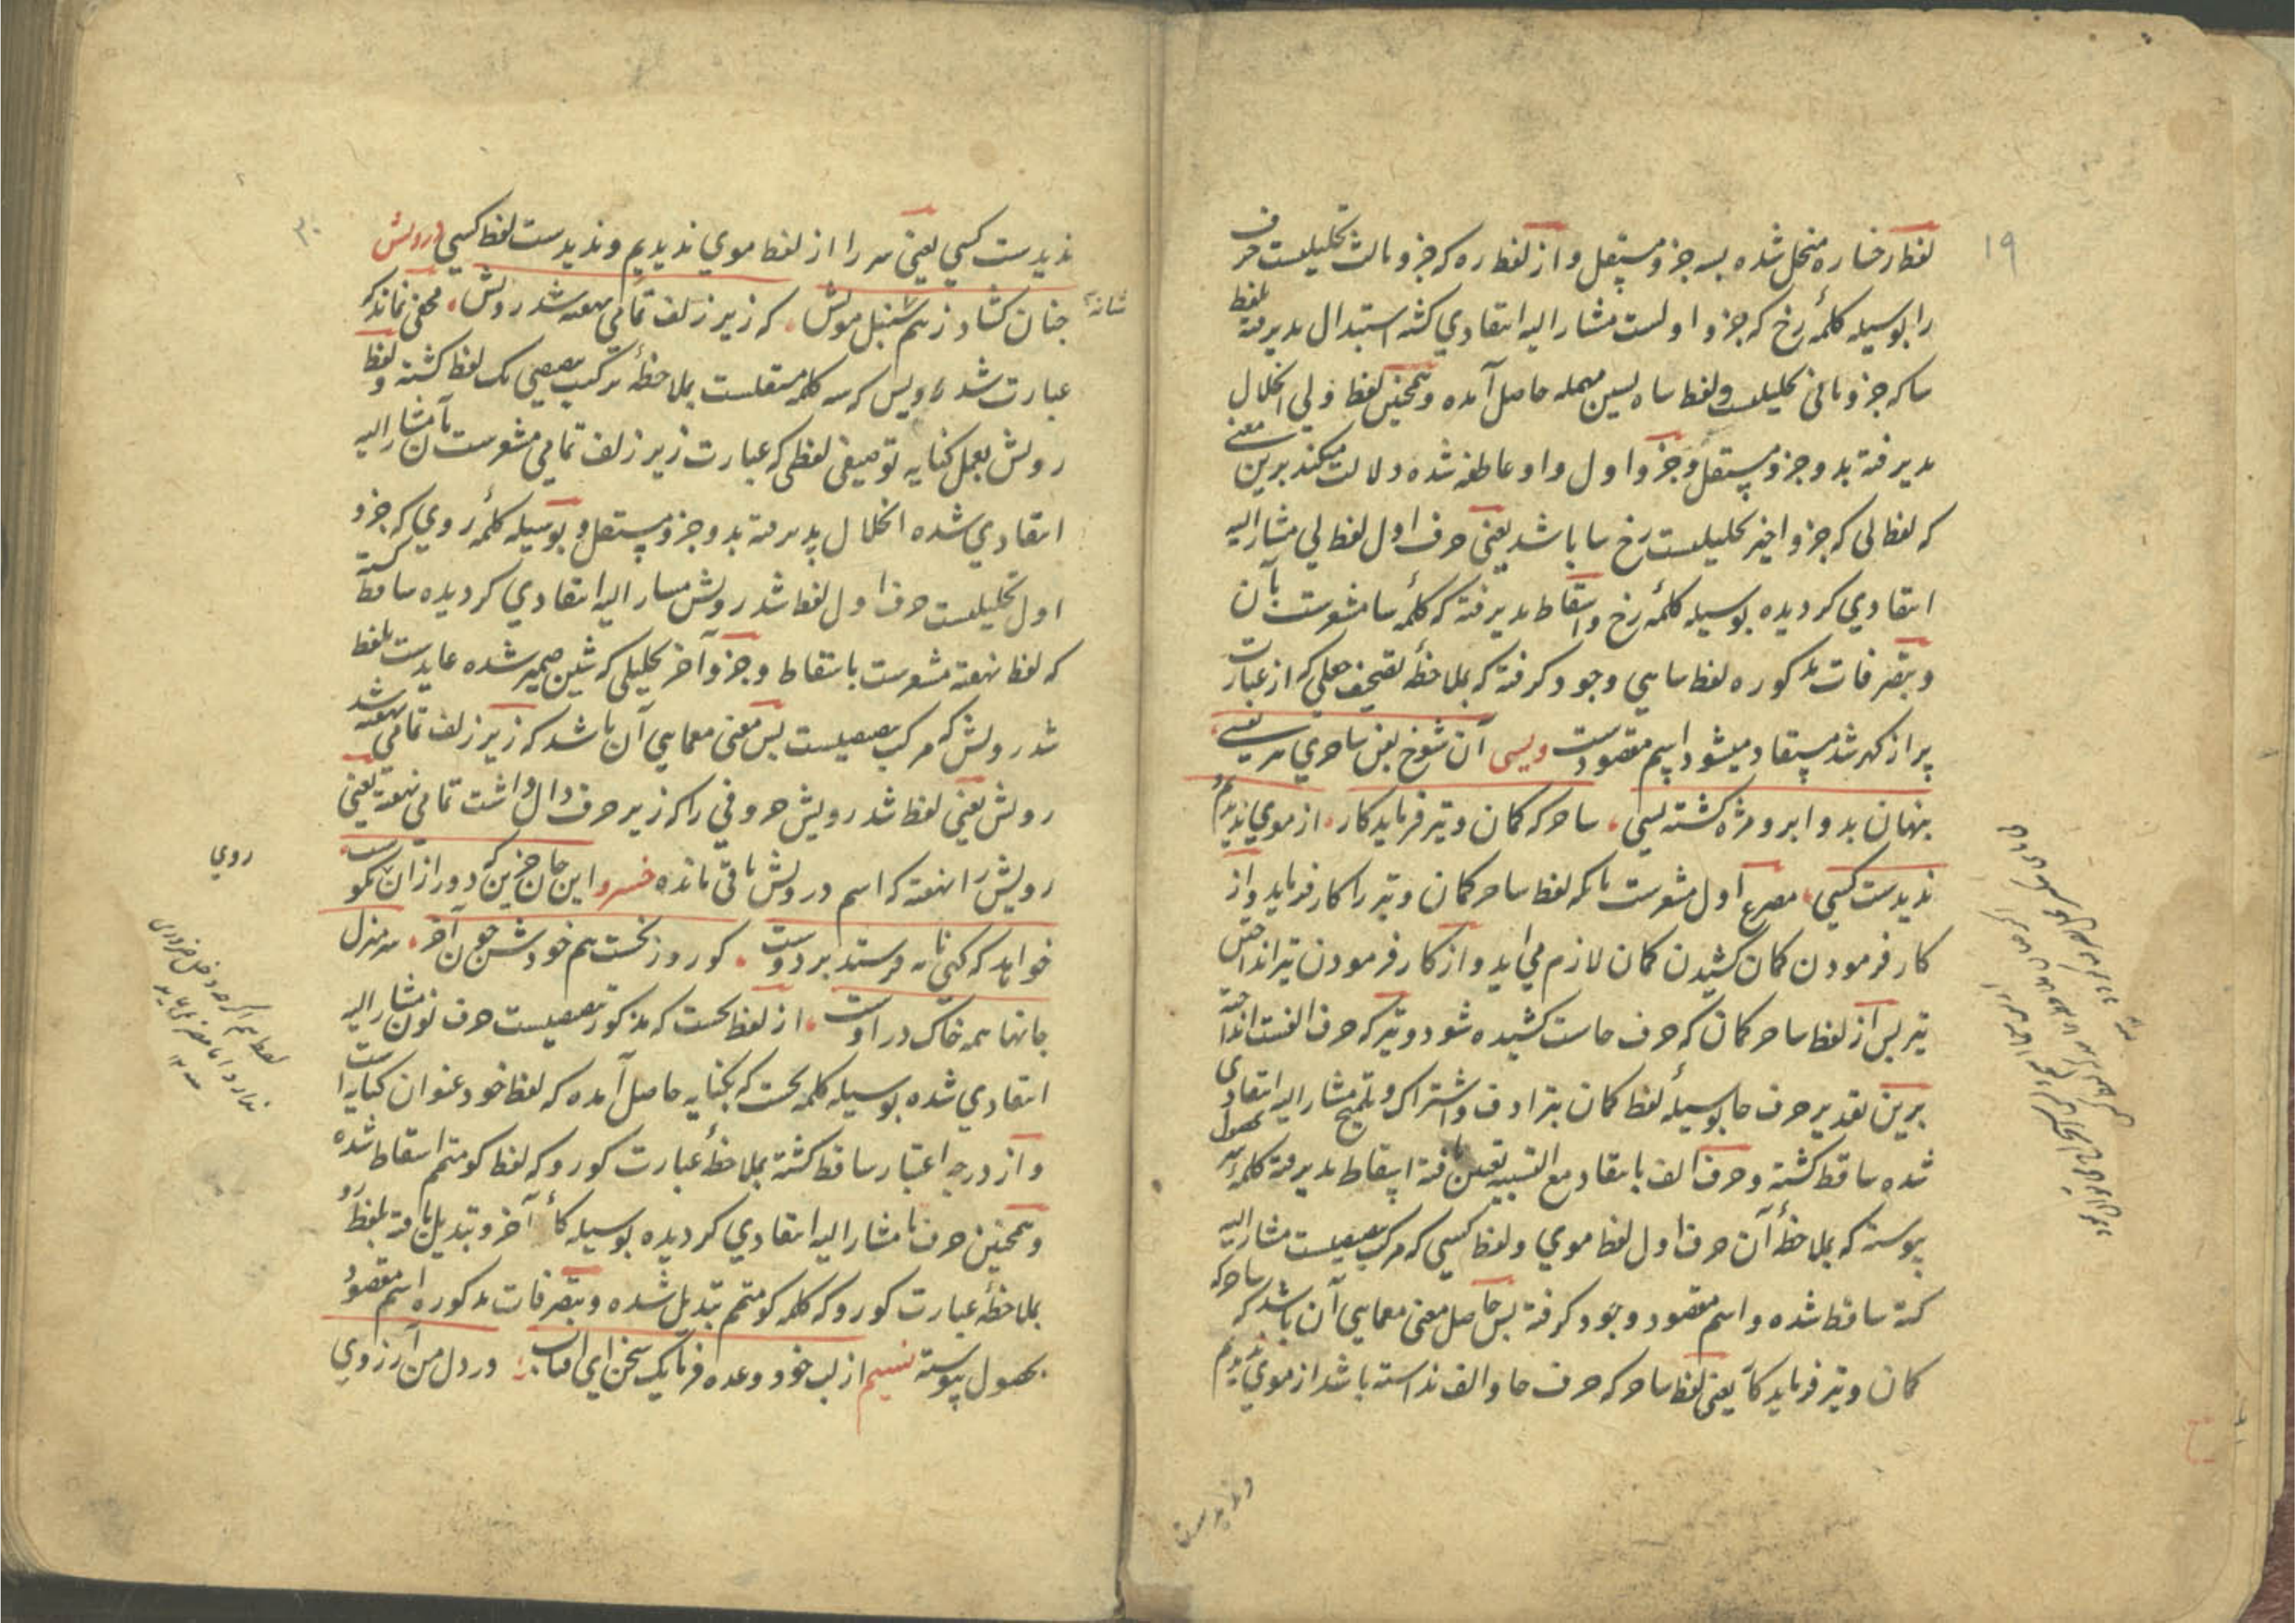 ۱۹
لفظ رخساره منحل شده بسه جزو مستقل و از لفظ ره که جزو ثالث تحلیلیست حرف
را بوسیله کلمهٔ رخ که جزو اولست مشار الیه انتقادی کشته استبدال پذیرفته بلفظ
سا که جزو ثانی تحلیلیست و لفظ ساه بسین مهمله حاصل آمده و همچنین لفظ ولی انحلال
پذیرفته بدو جزو مستقل و جزو اول واو عاطفه شده دلالت میکند برین معنی
که لفظ لی که جزو اخیر تحلیلیست رخ سا باشد یعنی حرف اول لفظ لی مشار الیه
انتقادی کردیده بوسیله کلمهٔ رخ و اسقاط پذیرفته که کلمهٔ سا مشعرست بآن
و بتصرفات مذکوره لفظ ساهی وجود کرفته که بملاحظهٔ تصحیف جعلی که از عبارت
پر از کهر شد مستفاد میشود اسم مقصودست ویسی آن شوخ بفن ساحری مر یعنی
پنهان بدو ابرو مژه کشته بسی ساحر که کمان و تیر فرماید کار از موی ندیدم
ندیدست کسی مصرع اول مشعرست بانکه لفظ ساحر کمان و تیر را کار فرماید و از
کار فرمودن کمان کشیدن کمان لازم می اید و از کار فرمودن تیر انداختن
تیر پس از لفظ ساحر کمان که حرف حاست کشیده شود و تیر که حرف الفست انداخته
برین تقدیر حرف حا بوسیلهٔ لفظ کمان بترادف و اشتراک و تلمیح مشار الیه انتقادی
شده ساقط کشته و حرف الف بانتقاد مع التشبیه تعین یافته اسقاط پذیرفته کلمه سر بحصول
پیوسته که بملاحظهٔ آن حرف اول لفظ موی و لفظ کسی که مرکب بعضیست مشار الیه
کشته ساقط شده و اسم مقصود وجود کرفته پس حاصل معنی معمایی آن باشد که ساحر که
کمان و تیر فرماید کار یعنی لفظ ساحر که حرف حا و الف نداشته باشد از موی ندیدم
و ندیدست
۳۰
ندیدست کسی یعنی سر را از لفظ موی ندیدیم و ندیدست لفظ کسی درویش
چنان کشاد ز هم سنبل مویش که زیر زلف تمامی نهفته شد رویش مخفی نماند که
شانه
عبارت شد رویش که سه کلمه مستقلست بملاحظهٔ ترکیب بعضی یک لفظ کشته و لفظ
رویش بعمل کنایه توصیفی لفظی که عبارت زیر زلف تمامی مشعرست بآن مشار الیه
انتقادی شده انحلال پذیرفته بدو جزو مستقل و بوسیله کلمهٔ روی که جزو
اول تحلیلیست حرف اول لفظ شد رویش مشار الیه انتقادی کردیده ساقط کشته
که لفظ نهفته مشعرست باسقاط و جزو آخر تحلیلی که شین ضمیر شده عایدست بلفظ
شد رویش که مرکب بعضیست پس معنی معمایی آن باشد که زیر زلف تمامی نهفته شد
رویش یعنی لفظ شد رویش حروفی را که زیر حرف دال داشت تمامی نهفته یعنی
رویش را نهفته که اسم درویش باقی مانده خسرو این جان حزین که دور ازان نکوست
خواهد که کنی نامه فرستد بر دوست کو روز نخست هم خودش چون آخر سر منزل
جانها همه خاک در اوست از لفظ نخست که مذکور بعضیست حرف نون مشار الیه
انتقادی شده بوسیله کلمه نخست که بکنایه حاصل آمده که لفظ خود عنوان کنایه است
و از درجه اعتبار ساقط کشته بملاحظهٔ عبارت کو رو که لفظ کو متمم اسقاط شده
و همچنین حرف تا مشار الیه انتقادی کردیده بوسیله کلمهٔ آخر و تبدیل یافته بلفظ رو
بملاحظهٔ عبارت کو رو که کلمه کو متمم تبدیل شده و بتصرفات مذکوره اسم مقصود
بحصول پیوسته نسیم از لب خود وعده فرما یک سخن ای آفتاب در دل من آرزوی
روی